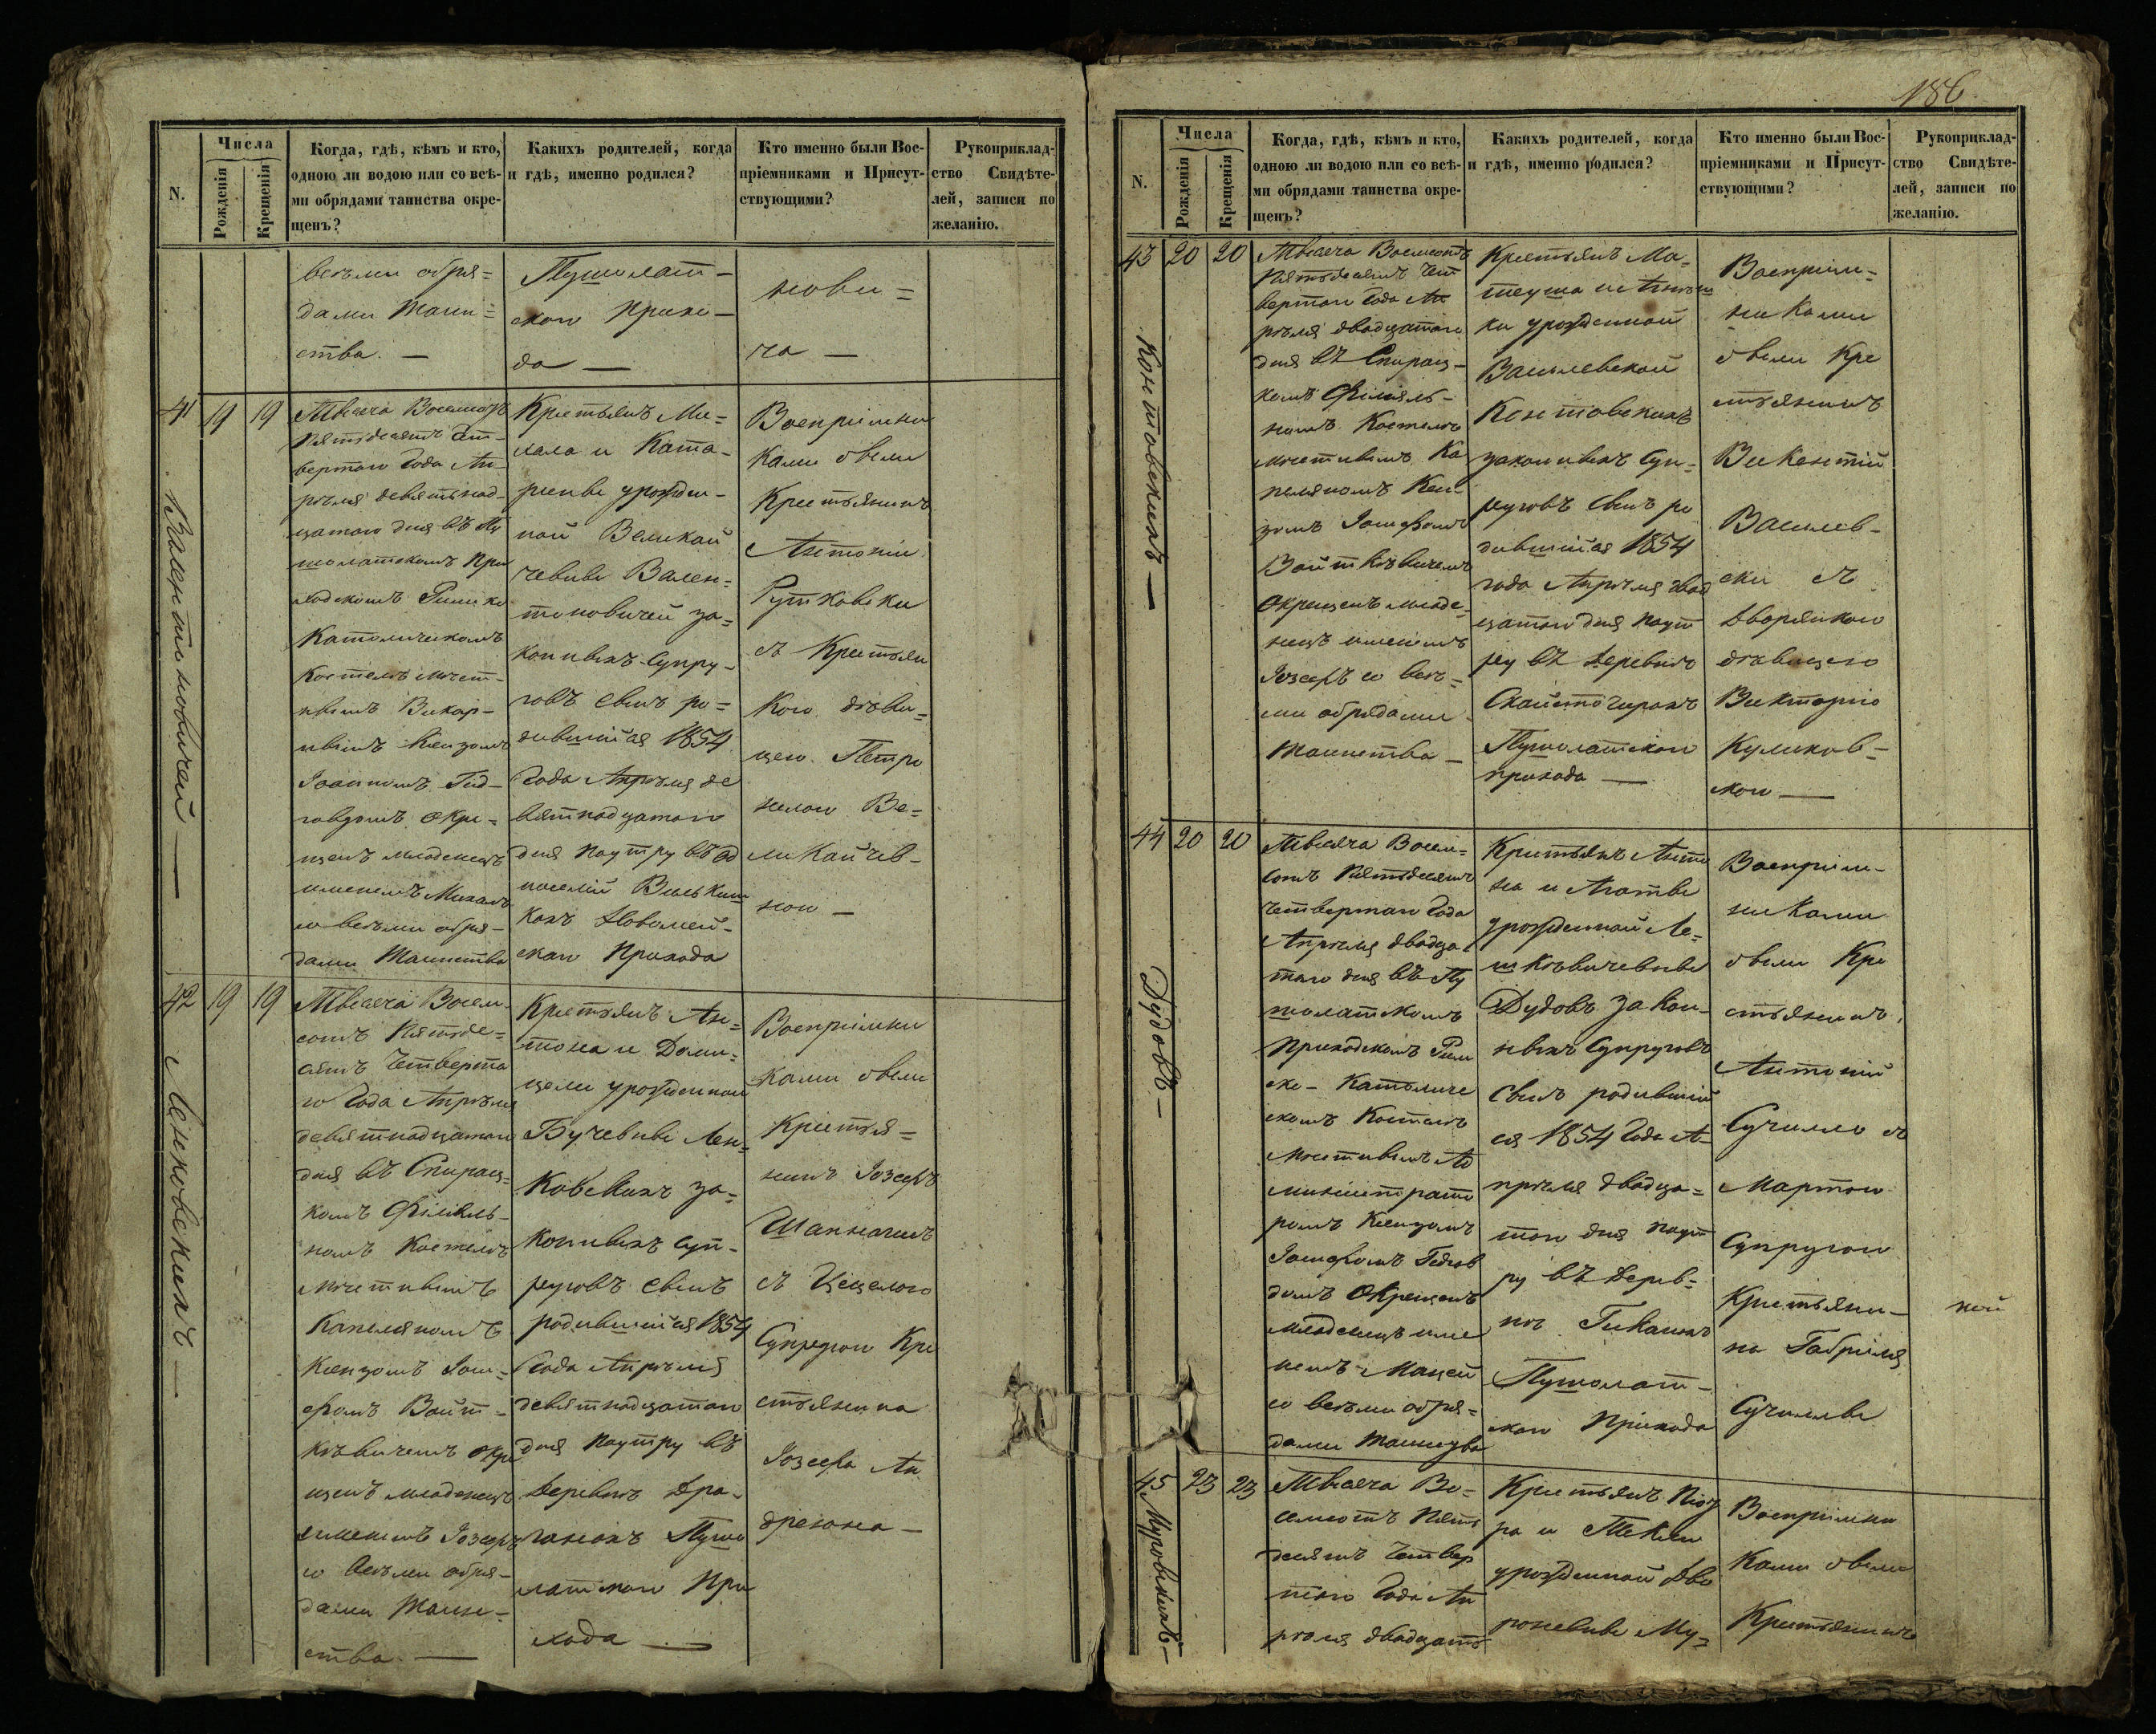 N.
Числа
Рожденія
Крещенія
Когда, гдѣ, кѣмъ и кто,
одною ли водою или со всѣ-
ми обрядами таинства окре-
щенъ?
Какихъ родителей, когда
и гдѣ, именно родился?
Кто именно были Вос-
пріемниками и Присут-
ствующими?
Рукоприклад-
ство Свидѣте-
лей, записи по
желанію.
всѣми обря=
дами Таин=
ства. —
Пушолат-
скаго Прихо-
да —
нови=
ча —
41
19
19
Валентыновичей —
Тысяча Восемсотъ
Пятьдесятъ Чет-
вертаго Года Ап-
рѣля девятнад-
цатаго дня въ Пу
шолатскомъ При
ходскомъ Римско
Католическомъ
Костелѣ мѣст-
нымъ Викар-
нымъ Ксендзомъ
окре-
щенъ младенецъ
именемъ Михалъ
со всѣми обря-
дами Таинства
Крестьянъ Ми-
хала и Ката-
рины урожден-
ной Великай
чевны Вален-
тыновичей за-
конныхъ Супру-
говъ сынъ ро=
дившійся 1854
Года Апрѣля де
вятнадцатаго
дня поутру въ од
носеліи
Прихода
Воспріемни
ками были
Крестьянинъ
Антоній
Рутковски
съ Крестьян
кою дѣви=
цею Петро
нелою Ве=
ликайчев-
ною —
42
19
19
Ленковскихъ —
Тысяча Восем-
сотъ Пятьде=
сятъ Четверта
го Года Апрѣля
девятнадцатаго
дня въ Спирац-
комъ Филіяль-
номъ Костелѣ
мѣстнымъ
Капеляномъ
Ксендзомъ Іози-
фомъ Войт-
кѣвичемъ окре
щенъ младенецъ
именемъ Іозефъ
со всѣми обря-
дами Таин-
ства. —
Крестьянъ Ан=
тона и Доми-
цели урожденной
Бучевны Лен-
ковскихъ за-
конныхъ Суп-
руговъ сынъ
родившійся 1854
Года Апрѣля
девятнадцатаго
дня поутру въ
Деревнѣ Дра-
ганахъ Пушо
латскаго При
хода —
Воспріемни
ками были
Крестья=
нинъ Іозефъ
съ Цецелою
Супругою Кре
стьянина
Іозефа Ан
дреюна —
186
N.
Числа
Рожденія
Крещенія
Когда, гдѣ, кѣмъ и кто,
одною ли водою или со всѣ-
ми обрядами таинства окре-
щенъ?
Какихъ родителей, когда
и гдѣ, именно родился?
Кто именно были Вос-
пріемниками и Присут-
ствующими?
Рукоприклад-
ство Свидѣте-
лей, записи по
желанію.
43
20
20
Контовскихъ —
Тысяча Восемсотъ
Пятьдесятъ Чет
вертаго Года Ап
рѣля двадцатаго
дня въ Спирац-
комъ Филіяль-
номъ Костелѣ
мѣстнымъ Ка
пеляномъ Ксен-
дзомъ Іозифомъ
Войткѣвичемъ
окрещенъ младе-
нецъ именемъ
Іозефъ со всѣ=
ми обрядами
Таинства —
Крестьянъ Ма-
теуша и
ки урожденной
Васылевской
Контовскихъ
законныхъ Суп-
руговъ сынъ ро
дившійся 1854
года Апрѣля двад
цатаго дня поут
ру въ Деревнѣ
Скайстогирахъ
Пушолатскаго
прихода —
Воспріем-
никами
были Кре
стьянинъ
Викентій
Василев-
ски съ
Дворянкою
дѣвицею
Викторіею
Куликов-
скою —
44
20
20
Дудовъ —
Тысяча Восем=
сотъ Пятьдесятъ
Четвертаго Года
Апрѣля двадца-
таго дня въ Пу
шолатскомъ
Приходскомъ Рим
ско-Католиче
скомъ Костелѣ
мѣстнымъ Ад
министрато
ромъ Ксендзомъ
Іозифомъ Гедгов
домъ окрещенъ
младенецъ име
немъ Мацей
со всѣми обря-
дами Таинства
Крестьянъ Анто
на и Агаты
урожденной Ле=
шкѣвичевны
Дудовъ Закон-
ныхъ Супруговъ
сынъ родившій
ся 1854 Года А-
прѣля двадца-
таго дня поут
ру въ Дерев-
нѣ
Пушолат-
скаго Прихода
Воспріем-
никами
были Кре
стьянинъ
Антоній
Сучилло съ
Мартою
Супругою
Крестьяни-
на Габріеля
Сучиллы
ной
45
23
23
Муровскихъ —
Тысяча Во-
семсотъ Пять
десятъ Четвер
таго Года Ап
рѣля двадцать
Крестьянъ Піот
ра и Текли
урожденной Дво
роневны Му=
Воспріемни
ками были
Крестьянинъ